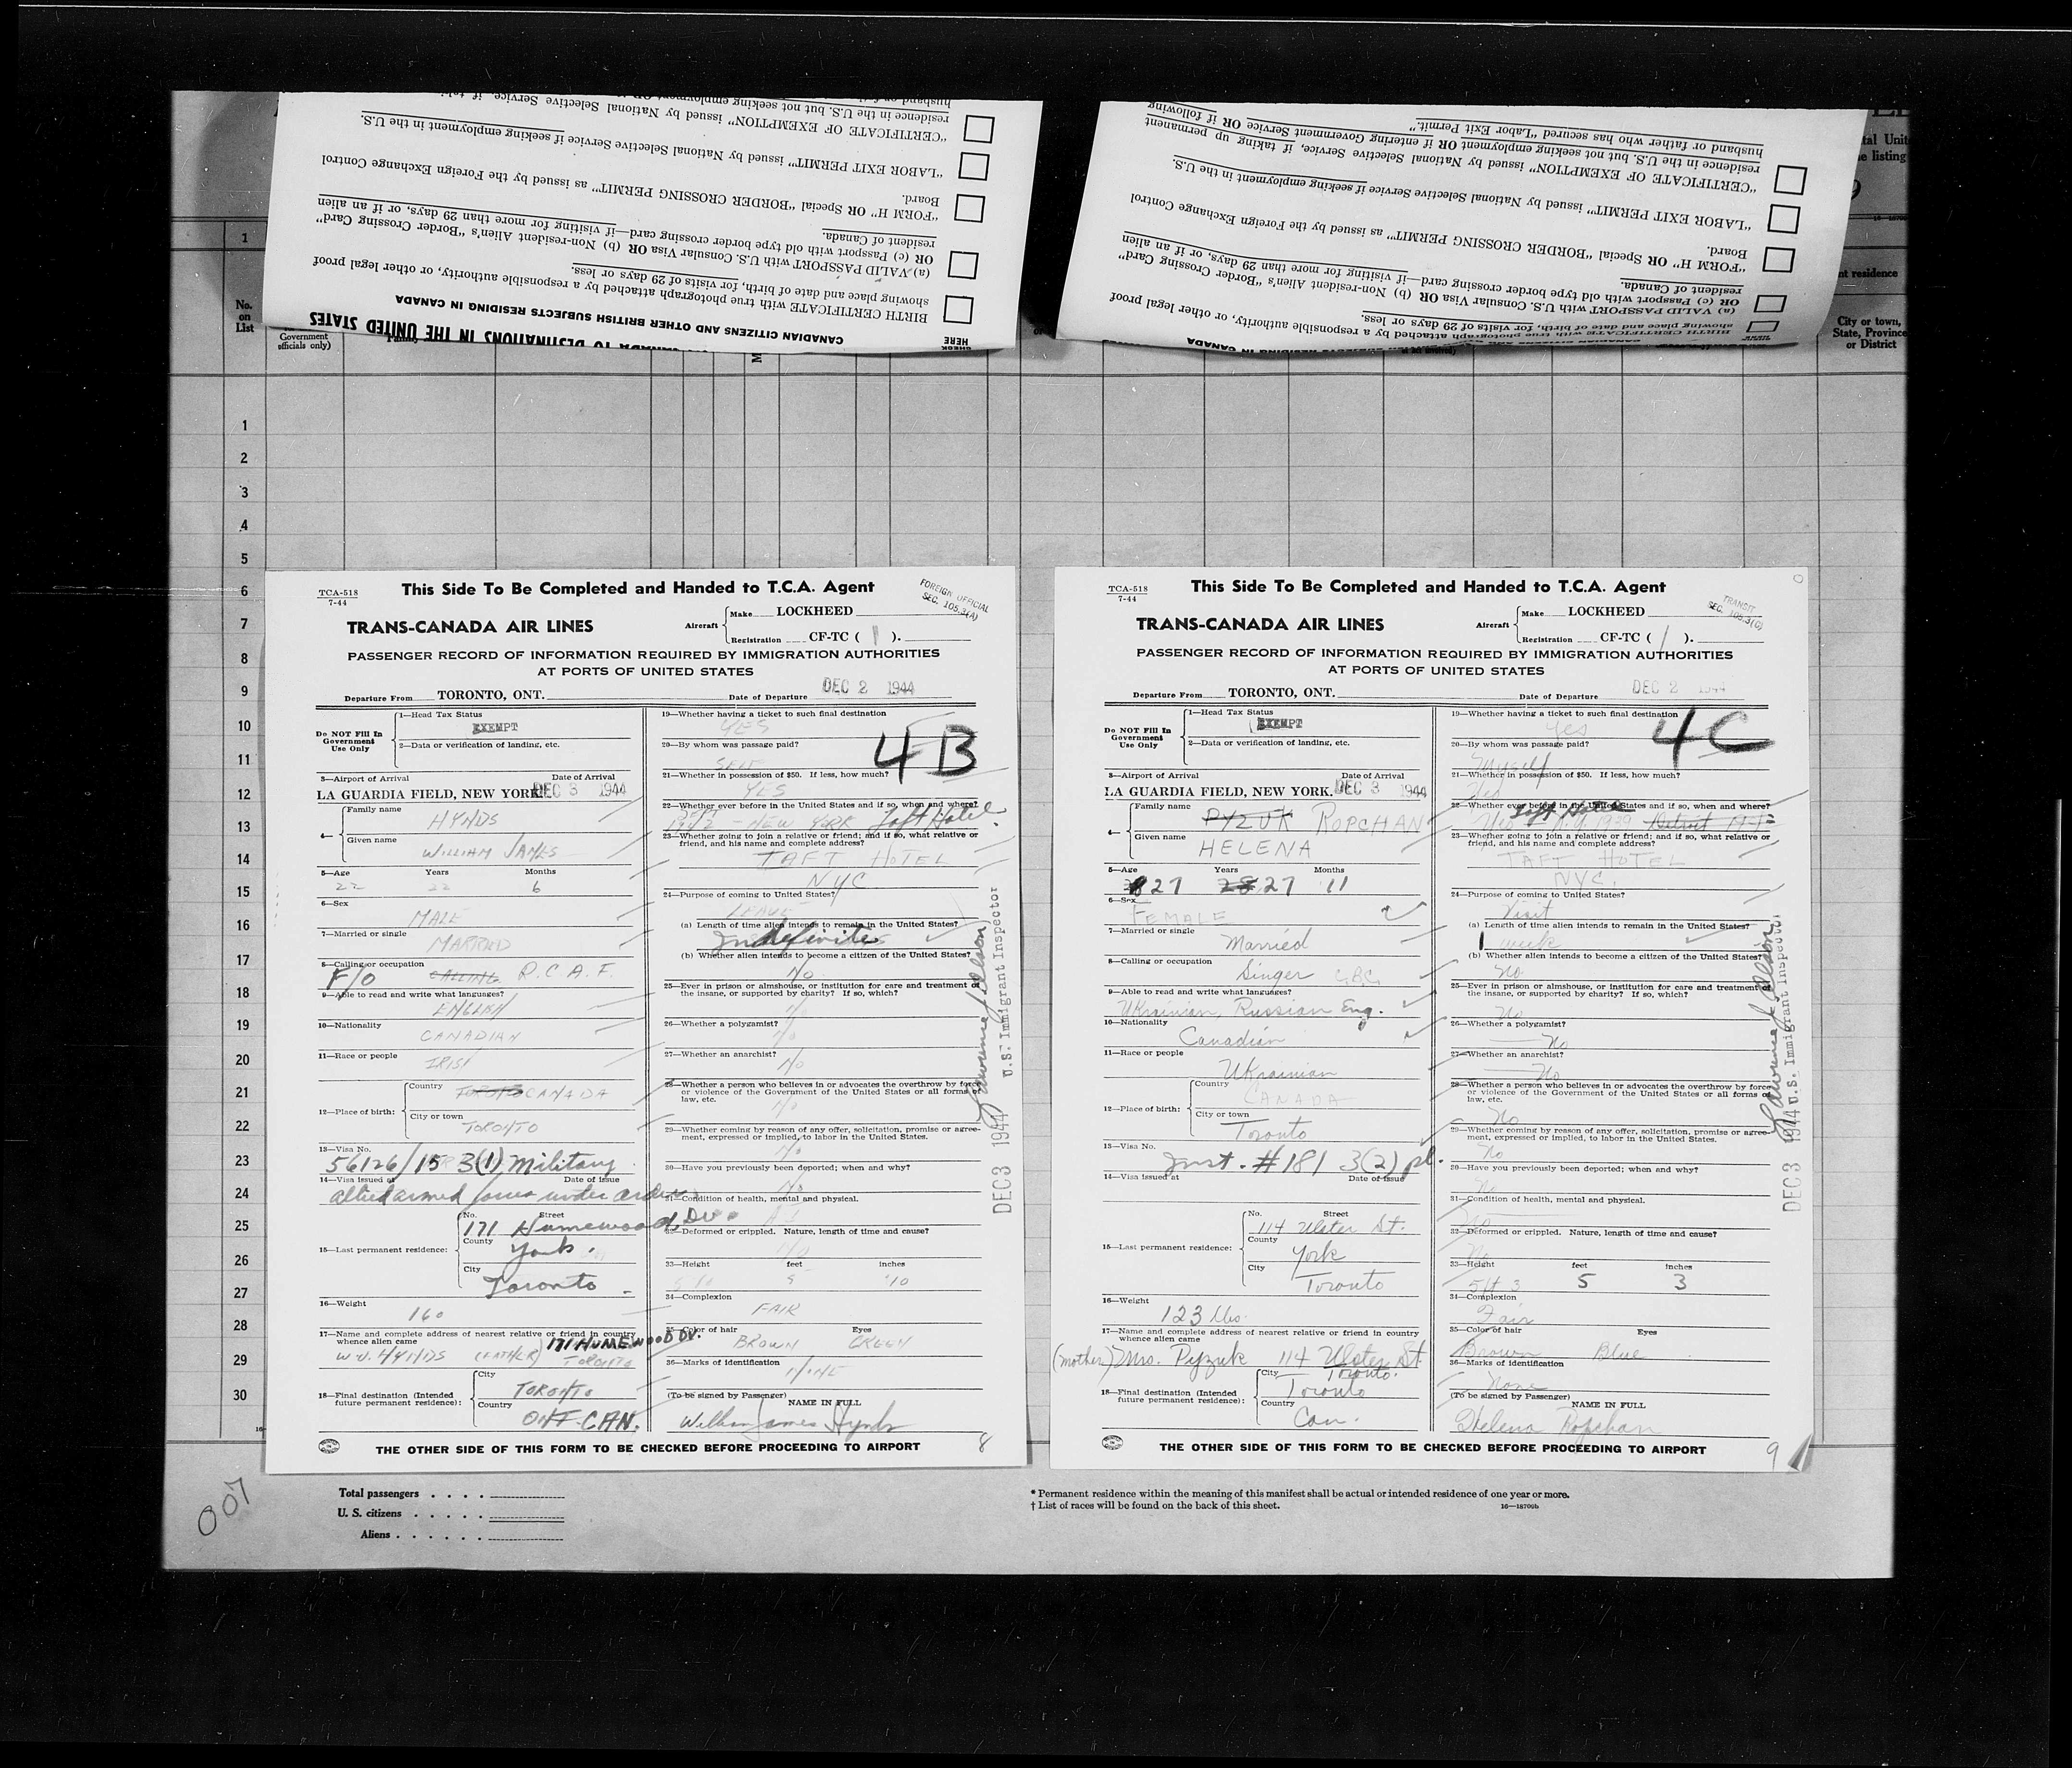 husband or
residence in the U.S. but not seeking employment OR
"CERTIFICATE OF EXEMPTION" issued by National Selective Service, if
"LABOR EXIT PERMIT" issued by National Selective Service if seeking employment in the U.S.
Board.
"FORM H" OR Special "BORDER CROSSING PERMIT" as issued by the Foreign Exchange Control
resident of Canada.
OR (c) Passport with old type border crossing card—if visiting for more than 29 days, or if an alien
(a) VALID PASSPORT with U.S. Consular Visa OR (b) Non-resident Alien's "Border Crossing Card"
showing place and date of birth, for visits of 29 days or less.
BIRTH CERTIFICATE with true photograph attached by a responsible authority, or other legal proof
CANADIAN CITIZENS AND OTHER BRITISH SUBJECTS RESIDING IN CANADA
CHECK HERE
TO DESTINATIONS IN THE UNITED STATES
husband or father who has secured "Labor Exit Permit".
residence in the U.S. but not seeking employment OR if entering Government Service OR if following
"CERTIFICATE OF EXEMPTION" issued by National Selective Service, if taking up permanent
"LABOR EXIT PERMIT" issued by National Selective Service if seeking employment in the U.S.
Board.
"FORM H" OR Special "BORDER CROSSING PERMIT" as issued by the Foreign Exchange Control
resident of Canada.
OR (c) Passport with old type border crossing card—if visiting for more than 29 days, or if an alien
(a) VALID PASSPORT with U.S. Consular Visa OR (b) Non-resident Alien's "Border Crossing Card"
showing place and date of birth, for visits of 29 days or less.
BIRTH CERTIFICATE with true photograph attached by a responsible authority, or other legal proof
1
No. on List
Government officials only)
City or town, State, Province or District
1
2
3
4
5
6
7
8
9
10
11
12
13
14
15
16
17
18
19
20
21
22
23
24
25
26
27
28
29
30
TCA-518
7-44
This Side To Be Completed and Handed to T.C.A. Agent
FOREIGN OFFICIAL
SEC. 105.3(A)
TRANS-CANADA AIR LINES
Aircraft
Make LOCKHEED
Registration CF-TC ( 1 ).
PASSENGER RECORD OF INFORMATION REQUIRED BY IMMIGRATION AUTHORITIES
AT PORTS OF UNITED STATES
Departure From TORONTO, ONT. Date of Departure DEC 2 1944
Do NOT Fill In Government Use Only
1—Head Tax Status
EXEMPT
2—Data or verification of landing, etc.
3—Airport of Arrival Date of Arrival
LA GUARDIA FIELD, NEW YORK. DEC 3 1944
4—
Family name
HYNDS
Given name
WILLIAM JAMES
5—Age Years Months
22 22 6
6—Sex
MALE
7—Married or single
MARRIED
8—Calling or occupation
F/O R.C.A.F.
9—Able to read and write what languages?
ENGLISH
10—Nationality
CANADIAN
11—Race or people
IRISH
12—Place of birth:
Country
TORONTO CANADA
City or town
TORONTO
13—Visa No.
56126/15 3(1) Military
14—Visa issued at Date of issue
allied armed forces under orders
15—Last permanent residence:
No. Street
171 Humewood, Dv.
County
York.
City
Toronto
16—Weight
160
17—Name and complete address of nearest relative or friend in country whence alien came
171 HUMEWOOD DV.
W.J. HYNDS (FATHER) TORONTO
18—Final destination (Intended future permanent residence):
City
TORONTO
Country
ONT. CAN.
19—Whether having a ticket to such final destination
YES
4B
20—By whom was passage paid?
SELF
21—Whether in possession of $50. If less, how much?
YES
22—Whether ever before in the United States and if so, when and where?
1942 - NEW YORK Taft Hotel
23—Whether going to join a relative or friend; and if so, what relative or friend, and his name and complete address?
TAFT HOTEL
NYC
24—Purpose of coming to United States?
LEAVE
(a) Length of time alien intends to remain in the United States?
Indefinite
(b) Whether alien intends to become a citizen of the United States?
No
25—Ever in prison or almshouse, or institution for care and treatment of the insane, or supported by charity? If so, which?
No
26—Whether a polygamist?
No
27—Whether an anarchist?
No
28—Whether a person who believes in or advocates the overthrow by force or violence of the Government of the United States or all forms of law, etc.
No
29—Whether coming by reason of any offer, solicitation, promise or agreement, expressed or implied, to labor in the United States.
No
30—Have you previously been deported; when and why?
No
31—Condition of health, mental and physical.
32—Deformed or crippled. Nature, length of time and cause?
No
33—Height feet inches
5 10 5 10
34—Complexion
FAIR
35—Color of hair Eyes
BROWN GREEN
36—Marks of identification
NONE
(To be signed by Passenger) NAME IN FULL
William James Hynds
THE OTHER SIDE OF THIS FORM TO BE CHECKED BEFORE PROCEEDING TO AIRPORT
8
DEC 3 1944 U.S. Immigrant Inspector
TCA-518
7-44
This Side To Be Completed and Handed to T.C.A. Agent
TRANSIT
SEC. 105.3(C)
TRANS-CANADA AIR LINES
Aircraft
Make LOCKHEED
Registration CF-TC ( 1 ).
PASSENGER RECORD OF INFORMATION REQUIRED BY IMMIGRATION AUTHORITIES
AT PORTS OF UNITED STATES
Departure From TORONTO, ONT. Date of Departure DEC 2 1944
Do NOT Fill In Government Use Only
1—Head Tax Status
EXEMPT
2—Data or verification of landing, etc.
3—Airport of Arrival Date of Arrival
LA GUARDIA FIELD, NEW YORK. DEC 3 1944
4—
Family name
PYZUK ROPCHAN
Given name
HELENA
5—Age Years Months
27 28 27 11
6—Sex
FEMALE
7—Married or single
Married
8—Calling or occupation
Singer CBC
9—Able to read and write what languages?
Ukrainian, Russian Eng.
10—Nationality
Canadian
11—Race or people
Ukrainian
12—Place of birth:
Country
CANADA
City or town
Toronto
13—Visa No.
Inst. #181 3(2) pl.
14—Visa issued at Date of issue
15—Last permanent residence:
No. Street
114 Ulster St.
County
York
City
Toronto
16—Weight
123 lbs.
17—Name and complete address of nearest relative or friend in country whence alien came
(mother) Mrs. Pyzuk 114 Ulster St.
Toronto.
18—Final destination (Intended future permanent residence):
City
Toronto
Country
Can.
19—Whether having a ticket to such final destination
Yes
4C
20—By whom was passage paid?
Myself
21—Whether in possession of $50. If less, how much?
Yes
22—Whether ever before in the United States and if so, when and where?
Taft Hotel
Yes 1939 Detroit
23—Whether going to join a relative or friend; and if so, what relative or friend, and his name and complete address?
TAFT HOTEL
NYC.
24—Purpose of coming to United States?
Visit
(a) Length of time alien intends to remain in the United States?
1 week
(b) Whether alien intends to become a citizen of the United States?
No
25—Ever in prison or almshouse, or institution for care and treatment of the insane, or supported by charity? If so, which?
No
26—Whether a polygamist?
No
27—Whether an anarchist?
No
28—Whether a person who believes in or advocates the overthrow by force or violence of the Government of the United States or all forms of law, etc.
No
29—Whether coming by reason of any offer, solicitation, promise or agreement, expressed or implied, to labor in the United States.
No
30—Have you previously been deported; when and why?
No
31—Condition of health, mental and physical.
32—Deformed or crippled. Nature, length of time and cause?
No
33—Height feet inches
5 ft 3 5 3
34—Complexion
Fair
35—Color of hair Eyes
Brown Blue
36—Marks of identification
None
(To be signed by Passenger) NAME IN FULL
Helena Ropchan
THE OTHER SIDE OF THIS FORM TO BE CHECKED BEFORE PROCEEDING TO AIRPORT
9
DEC 3 1944 U.S. Immigrant Inspector
007
Total passengers
U. S. citizens
Aliens
* Permanent residence within the meaning of this manifest shall be actual or intended residence of one year or more.
† List of races will be found on the back of this sheet. 16—18700b